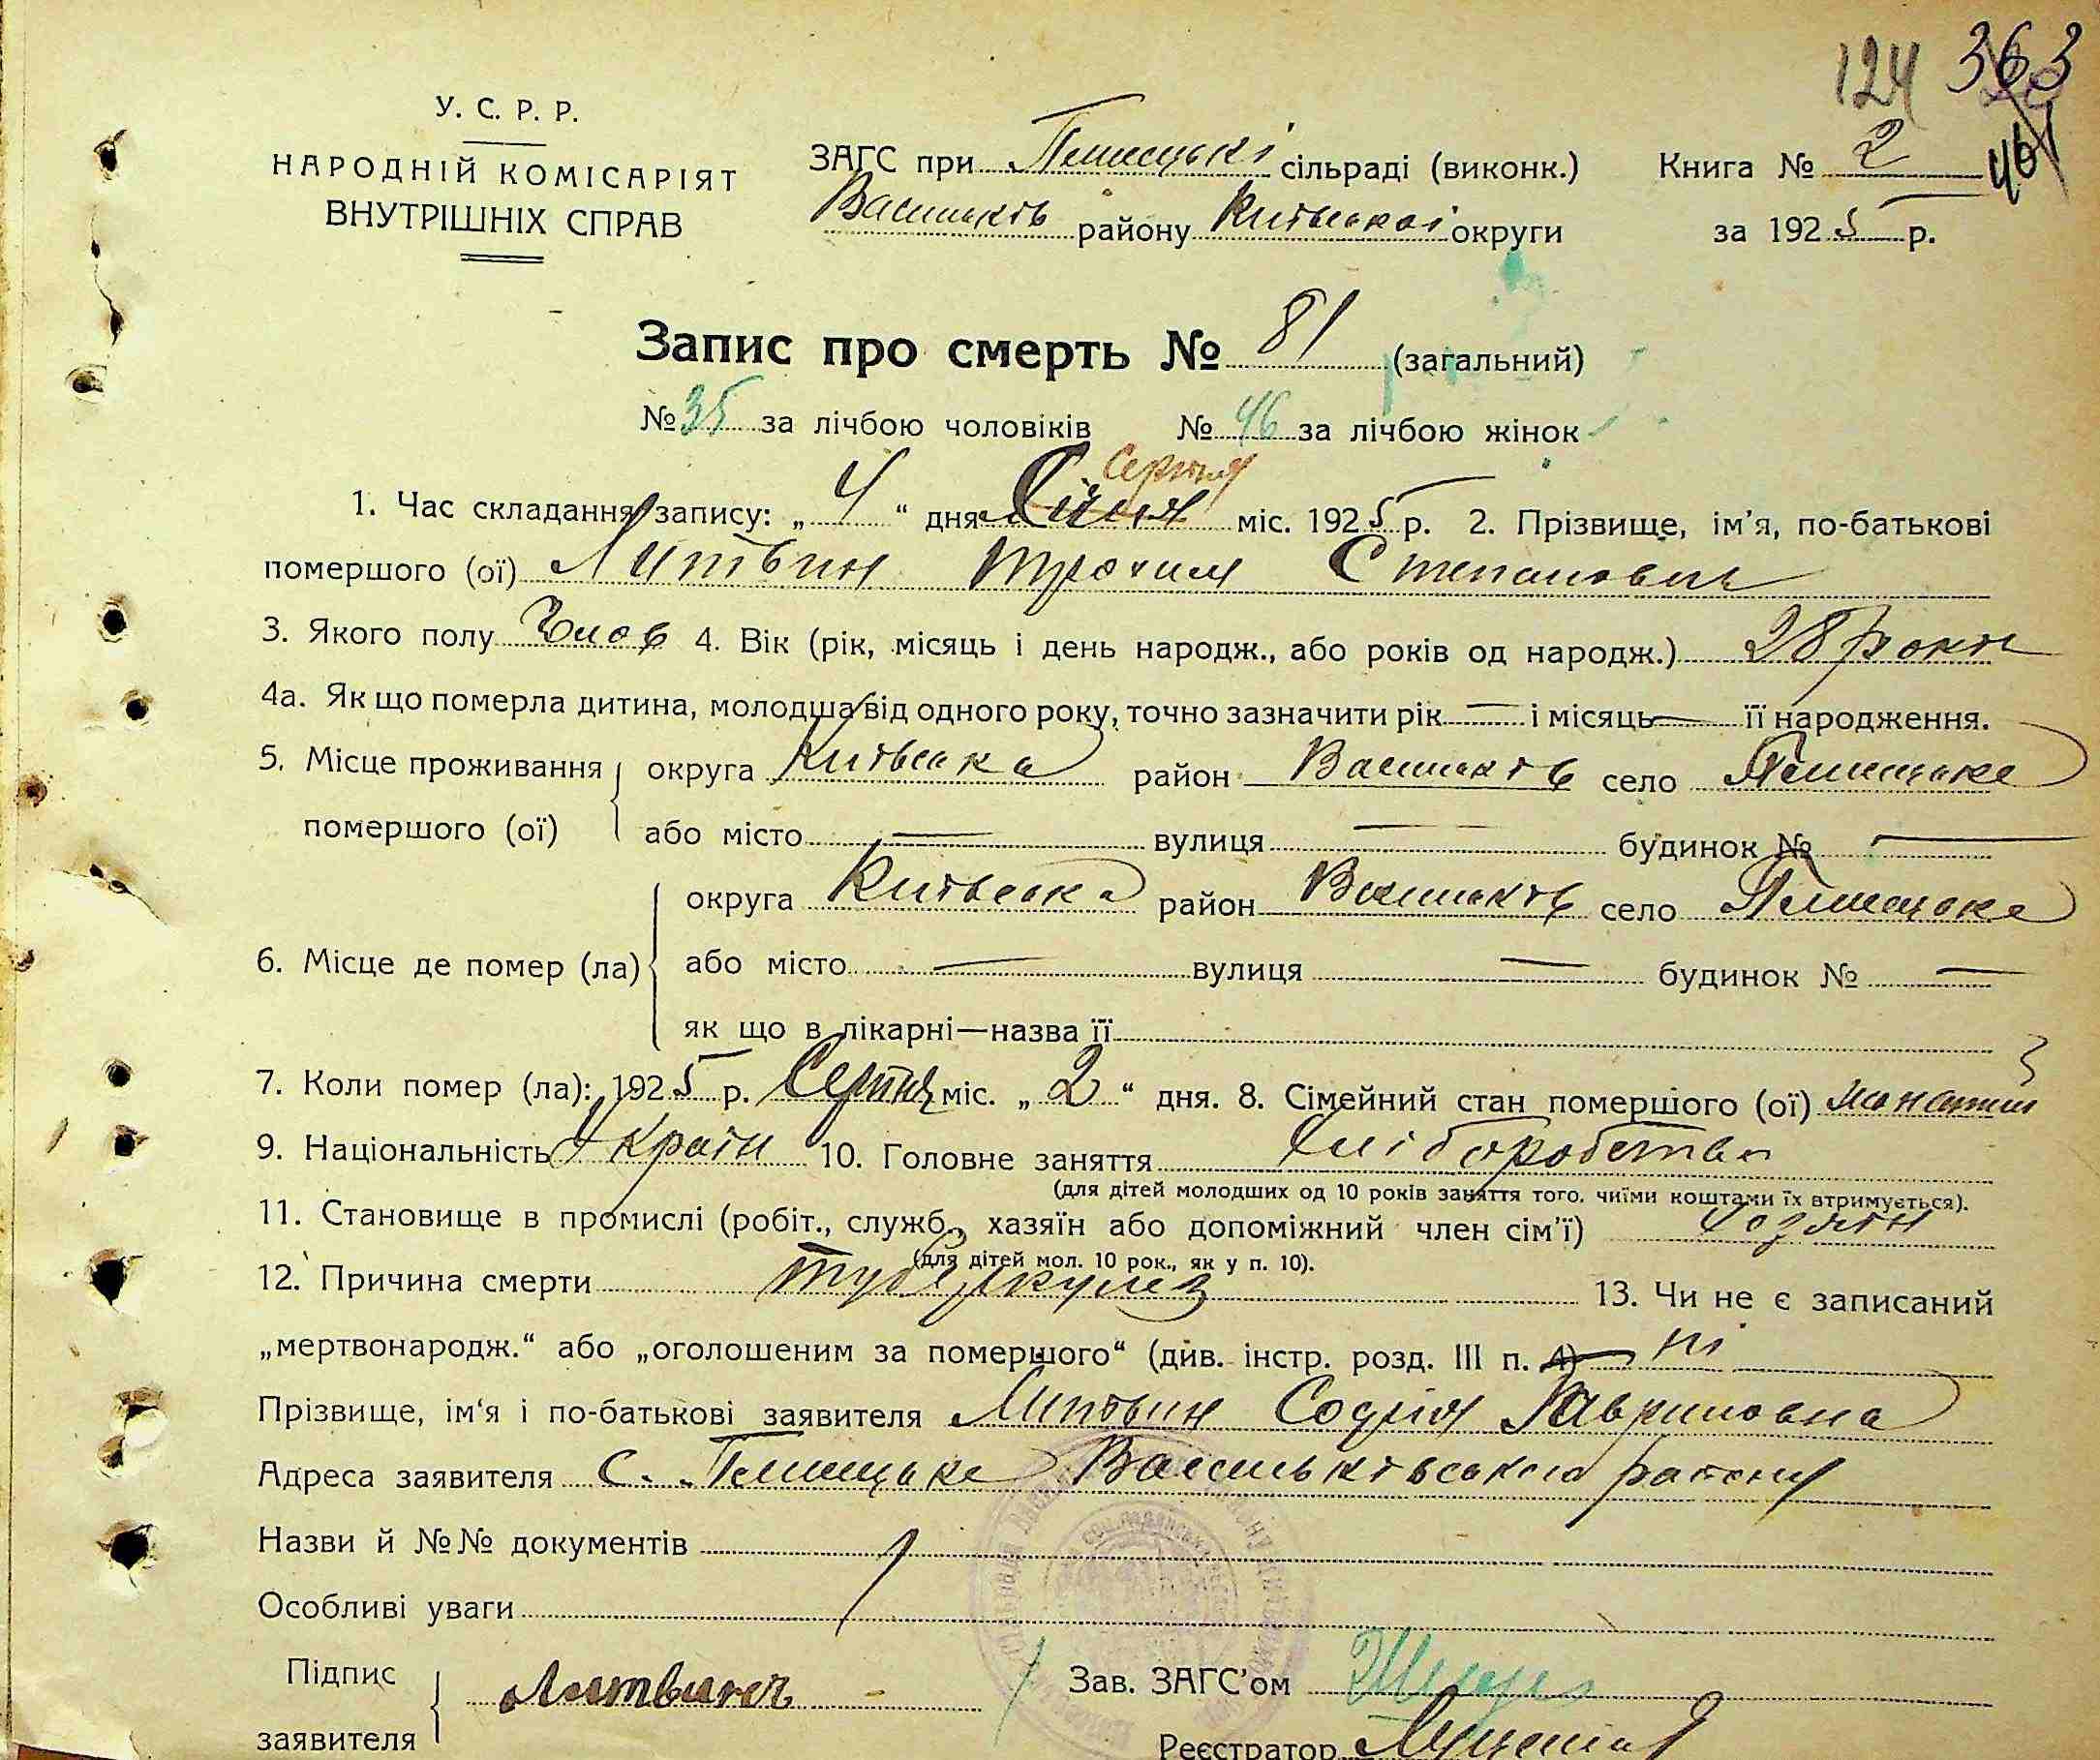 124 363
У. С. Р. Р.
НАРОДНІЙ КОМІСАРІЯТ
ВНУТРІШНІХ СПРАВ
ЗАГС при Плисецькі сільраді (виконк.) Книга № 2 461
Васильків району Київської округи за 1925 р.
Запис про смерть № 81 (загальний)
№ 35 за лічбою чоловіків № 46 за лічбою жінок
Серпня
1. Час складання запису: „ 4 “ дня Січня міс. 1925 р. 2. Прізвище, ім'я, по-батькові
помершого (ої) Литвин Трохим Степанович
3. Якого полу Чолов 4. Вік (рік, місяць і день народж., або років од народж.) 28 років
4а. Як що померла дитина, молодша від одного року, точно зазначити рік — і місяць — її народження.
5. Місце проживання округа Київська район Васильків село Плисецьке
помершого (ої) або місто — вулиця — будинок № —
округа Київська район Васильків село Плисецьке
6. Місце де помер (ла) або місто — вулиця — будинок № —
як що в лікарні—назва її
7. Коли помер (ла): 1925 р. Серпня міс. „ 2 “ дня. 8. Сімейний стан помершого (ої) жонатий
9. Національність Україн 10. Головне заняття хліборобство
(для дітей молодших од 10 років заняття того, чиїми коштами їх втримується).
11. Становище в промислі (робіт., служб., хазяїн або допоміжний член сім'ї) хозяїн
(для дітей мол. 10 рок., як у п. 10).
12. Причина смерти туберкулез 13. Чи не є записаний
„мертвонародж.“ або „оголошеним за помершого“ (див. інстр. розд. III п. 4) ні
Прізвище, ім'я і по-батькові заявителя Литвин Софія Гавриловна
Адреса заявителя с. Плисецьке Васильківського району
Назви й №№ документів
Особливі уваги
Підпис Литвинч Зав. ЗАГС'ом
заявителя Реєстратор